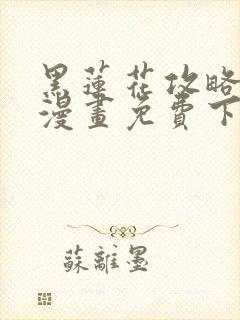 黑蓮花攻略
漫畫免費下
蘇離墨